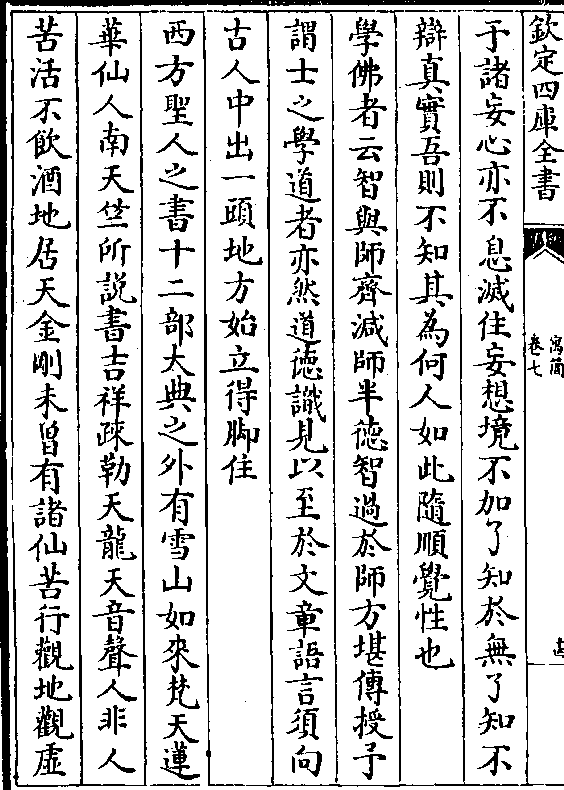 欽定四庫全書
寓簡
卷七
于諸妄心亦不息滅住妄想境不加了知於無了知不
辯真實吾則不知其為何人如此隨順覺性也
學佛者云智與師齊減師半德智過於師方堪傳授予
謂士之學道者亦然道德識見以至於文章語言須向
古人中出一頭地方始立得脚住
西方聖人之書十二部大典之外有雪山如來梵天蓮
華仙人南天竺所説書吉祥疎勒天龍天音聲人非人
苦活不飲酒地居天金剛未曾有諸仙苦行觀地觀虛